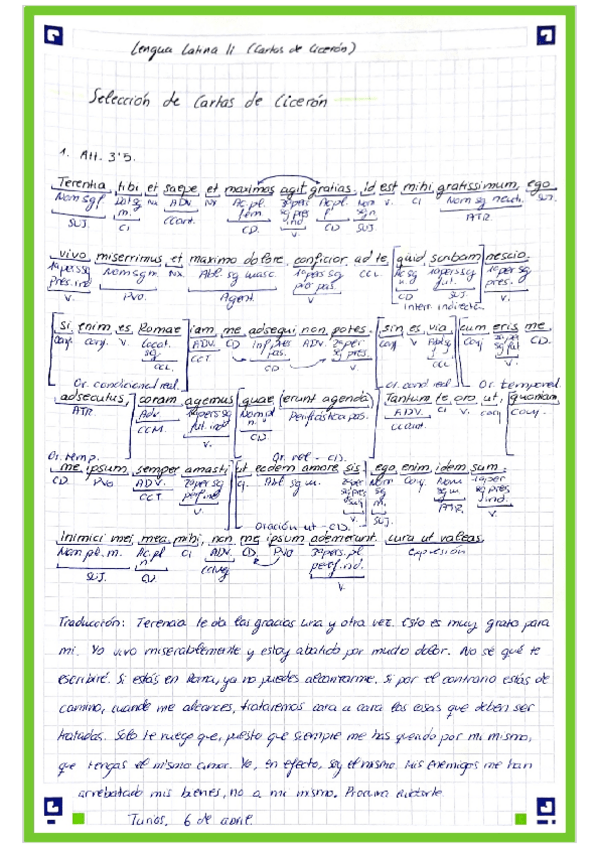 Lengua Latina II (Cartas de Cicerón)
Selección de Cartas de Cicerón
1. Att. 3'5.
Terentia tibi et saepe et maximas agit gratias. id est mihi gratissimum, ego
Nom sg f. Dat sg m. NX ADV. NX Ac. pl. fem. 3ª per sg pres ind Ac pl. f Nom sg n. V. CI Nom sg neutr. SUJ.
SUJ. CI CCant. NX CD. V. CD SUJ ATR.
vivo miserrimus et maximo dolore conficior ad te quid scribam nescio.
1ª per sg Pres. ind Nom sg m. NX Abl. sg masc. 1ª pers sg CCL Ac sg n. 1ª pers sg fut. 1ª per sg pres.
V. PVO. Agent. V. CD SUJ. V.
Interr. indirecta.
Si enim es Romae iam me adsequi non potes. sin es via cum eris me
conj. conj. V. Locat. sg. ADV. CD Inf. pres pas. ADV. 2ª per sg pres. conj V Conj CD.
CCL CCT CD V. CCL V.
Or. condicional real Or. cond real Or. temporal
adsecutus, coram agemus quae erunt agenda Tantum te oro ut, quoniam
ATR. Adv. 1ª pers sg fut. ind Nom pl n. Perifrástica pas. ADV. CI V. conj conj.
CCM. V. CD. V. CCcant.
Or. temp. Or. rel - CD.
me ipsum semper amasti ut eodem amore sis ego enim idem sum.
CD. PVO ADV. 2ª per sg perf. ind cj. Abl sg m. Nom sg m. Conj Nom sg m. 1ª per sg pres ind.
CCT V. V. SUJ. ATR V.
Oración ut - CD.
Inimici mei mea mihi, non me ipsum ademerunt. cura ut valeas.
Nom pl. m. Ac. pl n CI ADV. CD. PVO 3ª pers. pl perf. ind. Expresión
SUJ. CD. CCNeg V.
Traducción: Terencia te da las gracias una y otra vez. Esto es muy grato para
mi. Yo vivo miserablemente y estoy abatido por mucho dolor. No sé qué te
escribiré. Si estás en Roma, ya no puedes alcanzarme. Si por el contrario estás de
camino, cuando me alcances, trataremos cara a cara las cosas que deben ser
tratadas. Solo te ruego que, puesto que siempre me has querido por mi mismo,
que tengas el mismo amor. Yo, en efecto, soy el mismo. Mis enemigos me han
arrebatado mis bienes, no a mi mismo. Procura cuidarte.
Turios, 6 de abril.